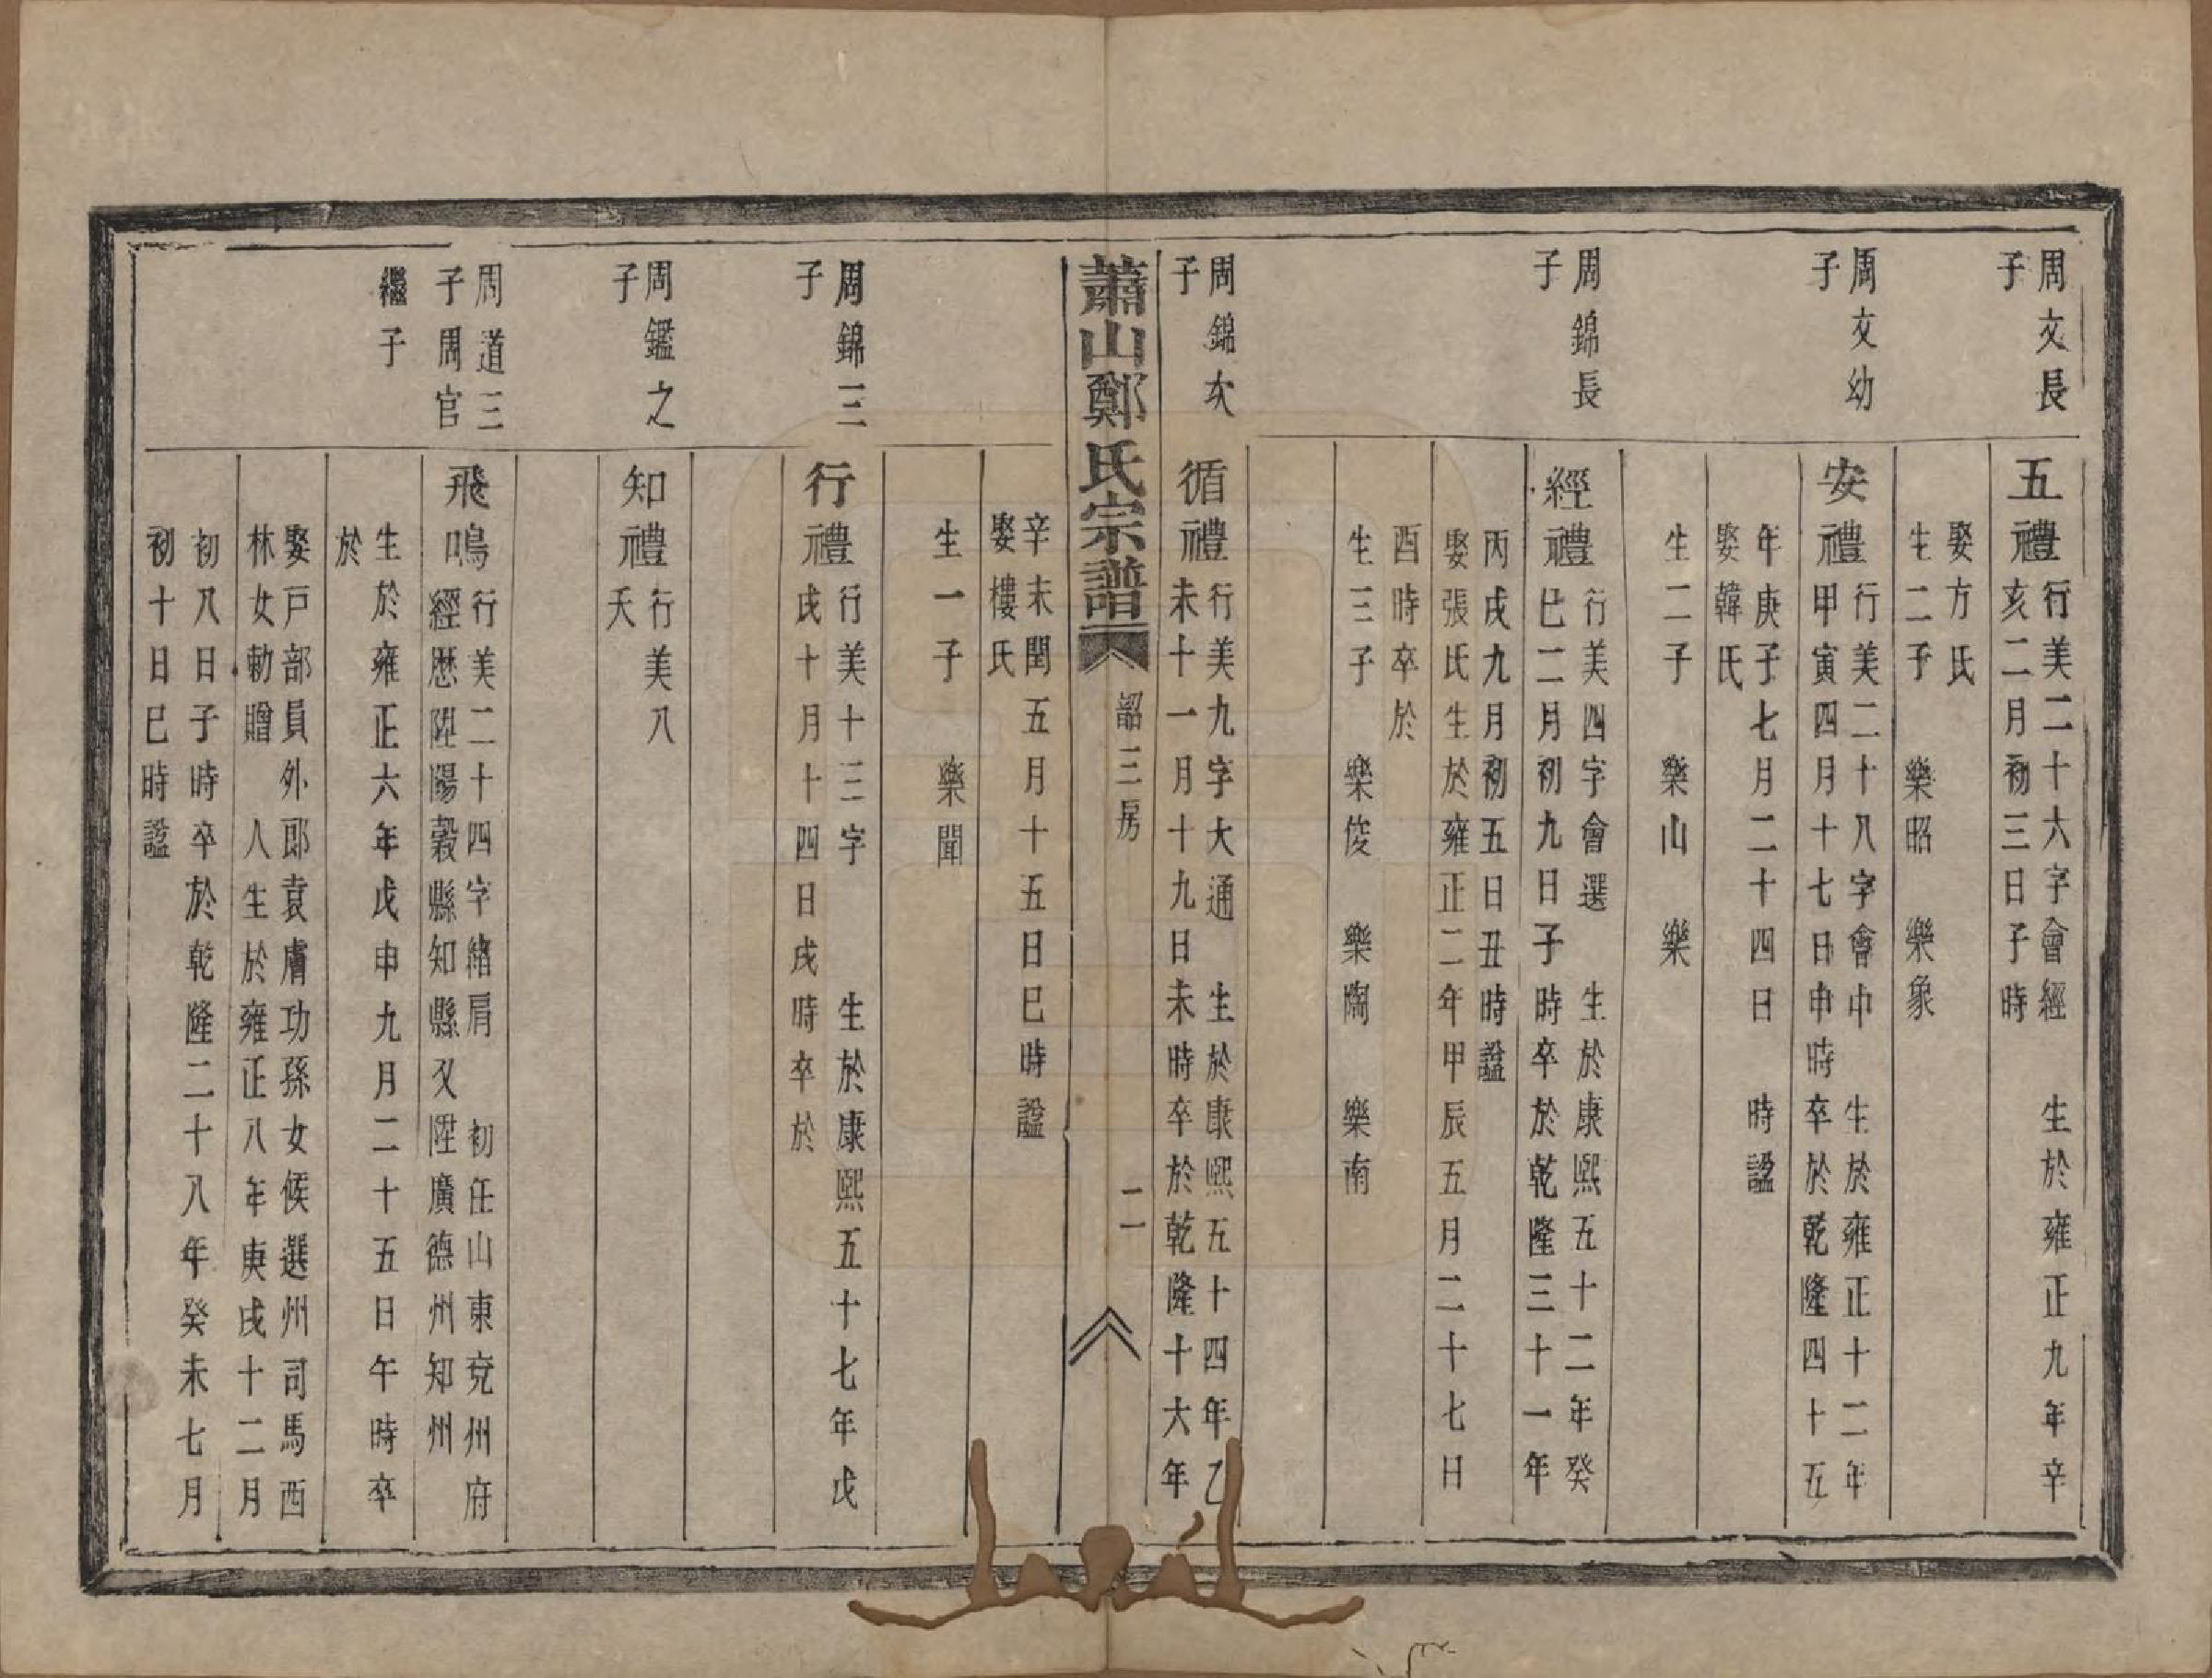 周文長
子
五禮
行美二十六字會經　生於雍正九年辛
亥二月初三日子時
娶方氏
生二子　樂昭　樂象
周文幼
子
安禮
行美二十八字會中　生於雍正十二年
甲寅四月十七日申時卒於乾隆四十五
年庚子七月二十四日　時諡
娶韓氏
生二子　樂山　樂
周錦長
子
經禮
行美四字會選　生於康熙五十二年癸
巳二月初九日子時卒於乾隆三十一年
丙戌九月初五日丑時諡
娶張氏生於雍正二年甲辰五月二十七日
酉時卒於
生三子　樂俊　樂陶　樂南
周錦次
子
循禮
行美九字大通　生於康熙五十四年乙
未十一月十九日未時卒於乾隆十六年
蕭山鄭氏宗譜　韶三房　二
辛未閏五月十五日巳時諡
娶樓氏
生一子　樂聞
周錦三
子
行禮
行美十三字　生於康熙五十七年戊
戌十月十四日戌時卒於
周鑑之
子
知禮
行美八
夭
周道三
子周官
繼子
飛鳴
行美二十四字緒肩　初任山東兗州府
經歷陞陽穀縣知縣又陞廣德州知州
生於雍正六年戊申九月二十五日午時卒
於
娶戶部員外郎袁膚功孫女候選州司馬西
林女勅贈　人生於雍正八年庚戌十二月
初八日子時卒於乾隆二十八年癸未七月
初十日巳時諡